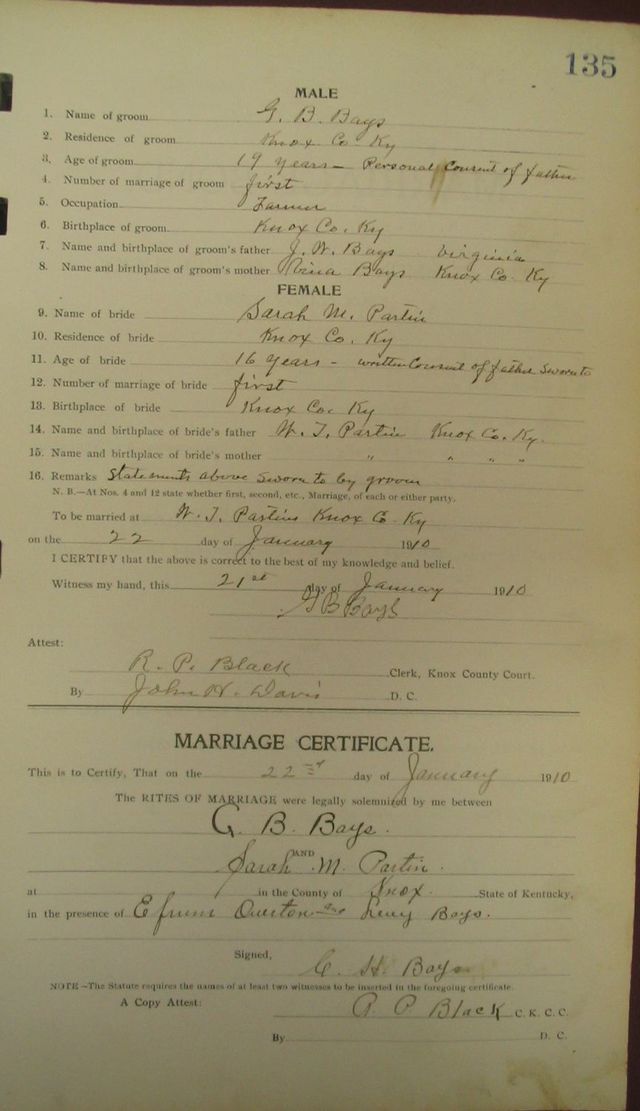 135
MALE
1. Name of groom G. B. Bays
2. Residence of groom Knox Co. Ky
3. Age of groom 19 Years - Personal Consent of father
4. Number of marriage of groom first
5. Occupation Farmer
6. Birthplace of groom Knox Co. Ky
7. Name and birthplace of groom's father J. W. Bays Virginia
8. Name and birthplace of groom's mother Vina Bays Knox Co. Ky
FEMALE
9. Name of bride Sarah M. Partin
10. Residence of bride Knox Co. Ky
11. Age of bride 16 Years - written Consent of father Sworn to
12. Number of marriage of bride first
13. Birthplace of bride Knox Co. Ky
14. Name and birthplace of bride's father W. T. Partin Knox Co. Ky.
15. Name and birthplace of bride's mother " " " "
16. Remarks Statements above Sworn to by groom
N. B.—At Nos. 4 and 12 state whether first, second, etc., Marriage, of each or either party.
To be married at W. T. Partins Knox Co Ky
on the 22 day of January 1910
I CERTIFY that the above is correct to the best of my knowledge and belief.
Witness my hand, this 21st day of January 1910
G B Bays
Attest:
R. P. Black Clerk, Knox County Court.
By John H. Davis D. C.
MARRIAGE CERTIFICATE.
This is to Certify, That on the 22nd day of January 1910
The RITES OF MARRIAGE were legally solemnized by me between
G. B. Bays.
AND
Sarah M. Partin.
at in the County of Knox. State of Kentucky,
in the presence of Efrum Overton and Bays.
Signed,
C. H. Bays
NOTE—The Statute requires the names of at least two witnesses to be inserted in the foregoing certificate.
A Copy Attest: R P Black C. K. C. C.
By D. C.